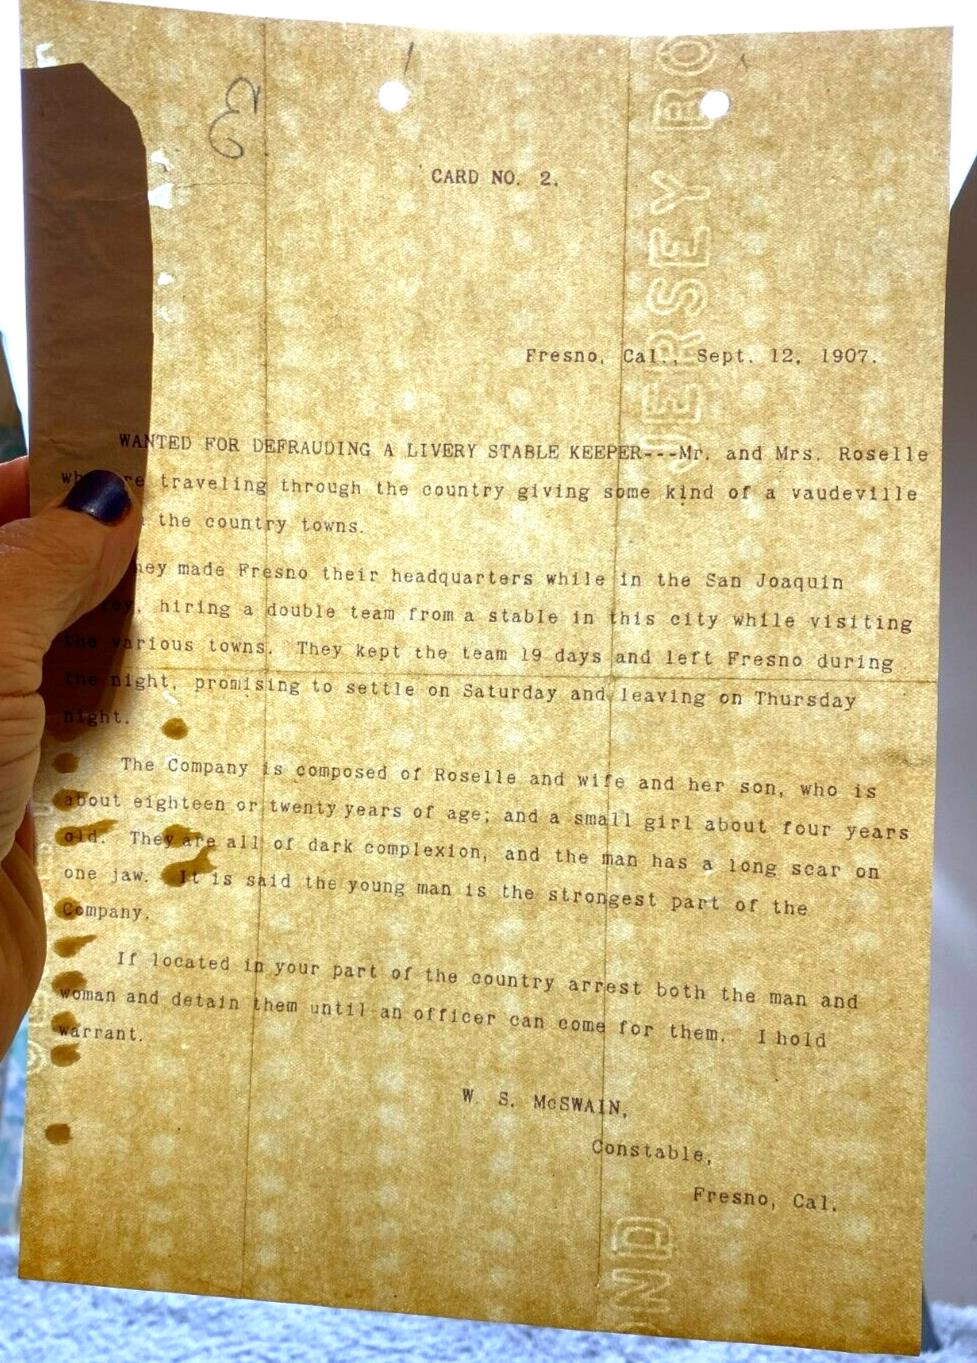 3
CARD NO. 2.
Fresno, Cal., Sept. 12, 1907.
WANTED FOR DEFRAUDING A LIVERY STABLE KEEPER---Mr. and Mrs. Roselle
traveling through the country giving some kind of a vaudeville
the country towns.
made Fresno their headquarters while in the San Joaquin
hiring a double team from a stable in this city while visiting
the various towns. They kept the team 19 days and left Fresno during
the night, promising to settle on Saturday and leaving on Thursday
night.
The Company is composed of Roselle and wife and her son, who is
about eighteen or twenty years of age; and a small girl about four years
old. They are all of dark complexion, and the man has a long scar on
one jaw. It is said the young man is the strongest part of the
Company.
If located in your part of the country arrest both the man and
woman and detain them until an officer can come for them. I hold
warrant.
W. S. McSWAIN,
Constable,
Fresno, Cal.
JERSEY BO
OND